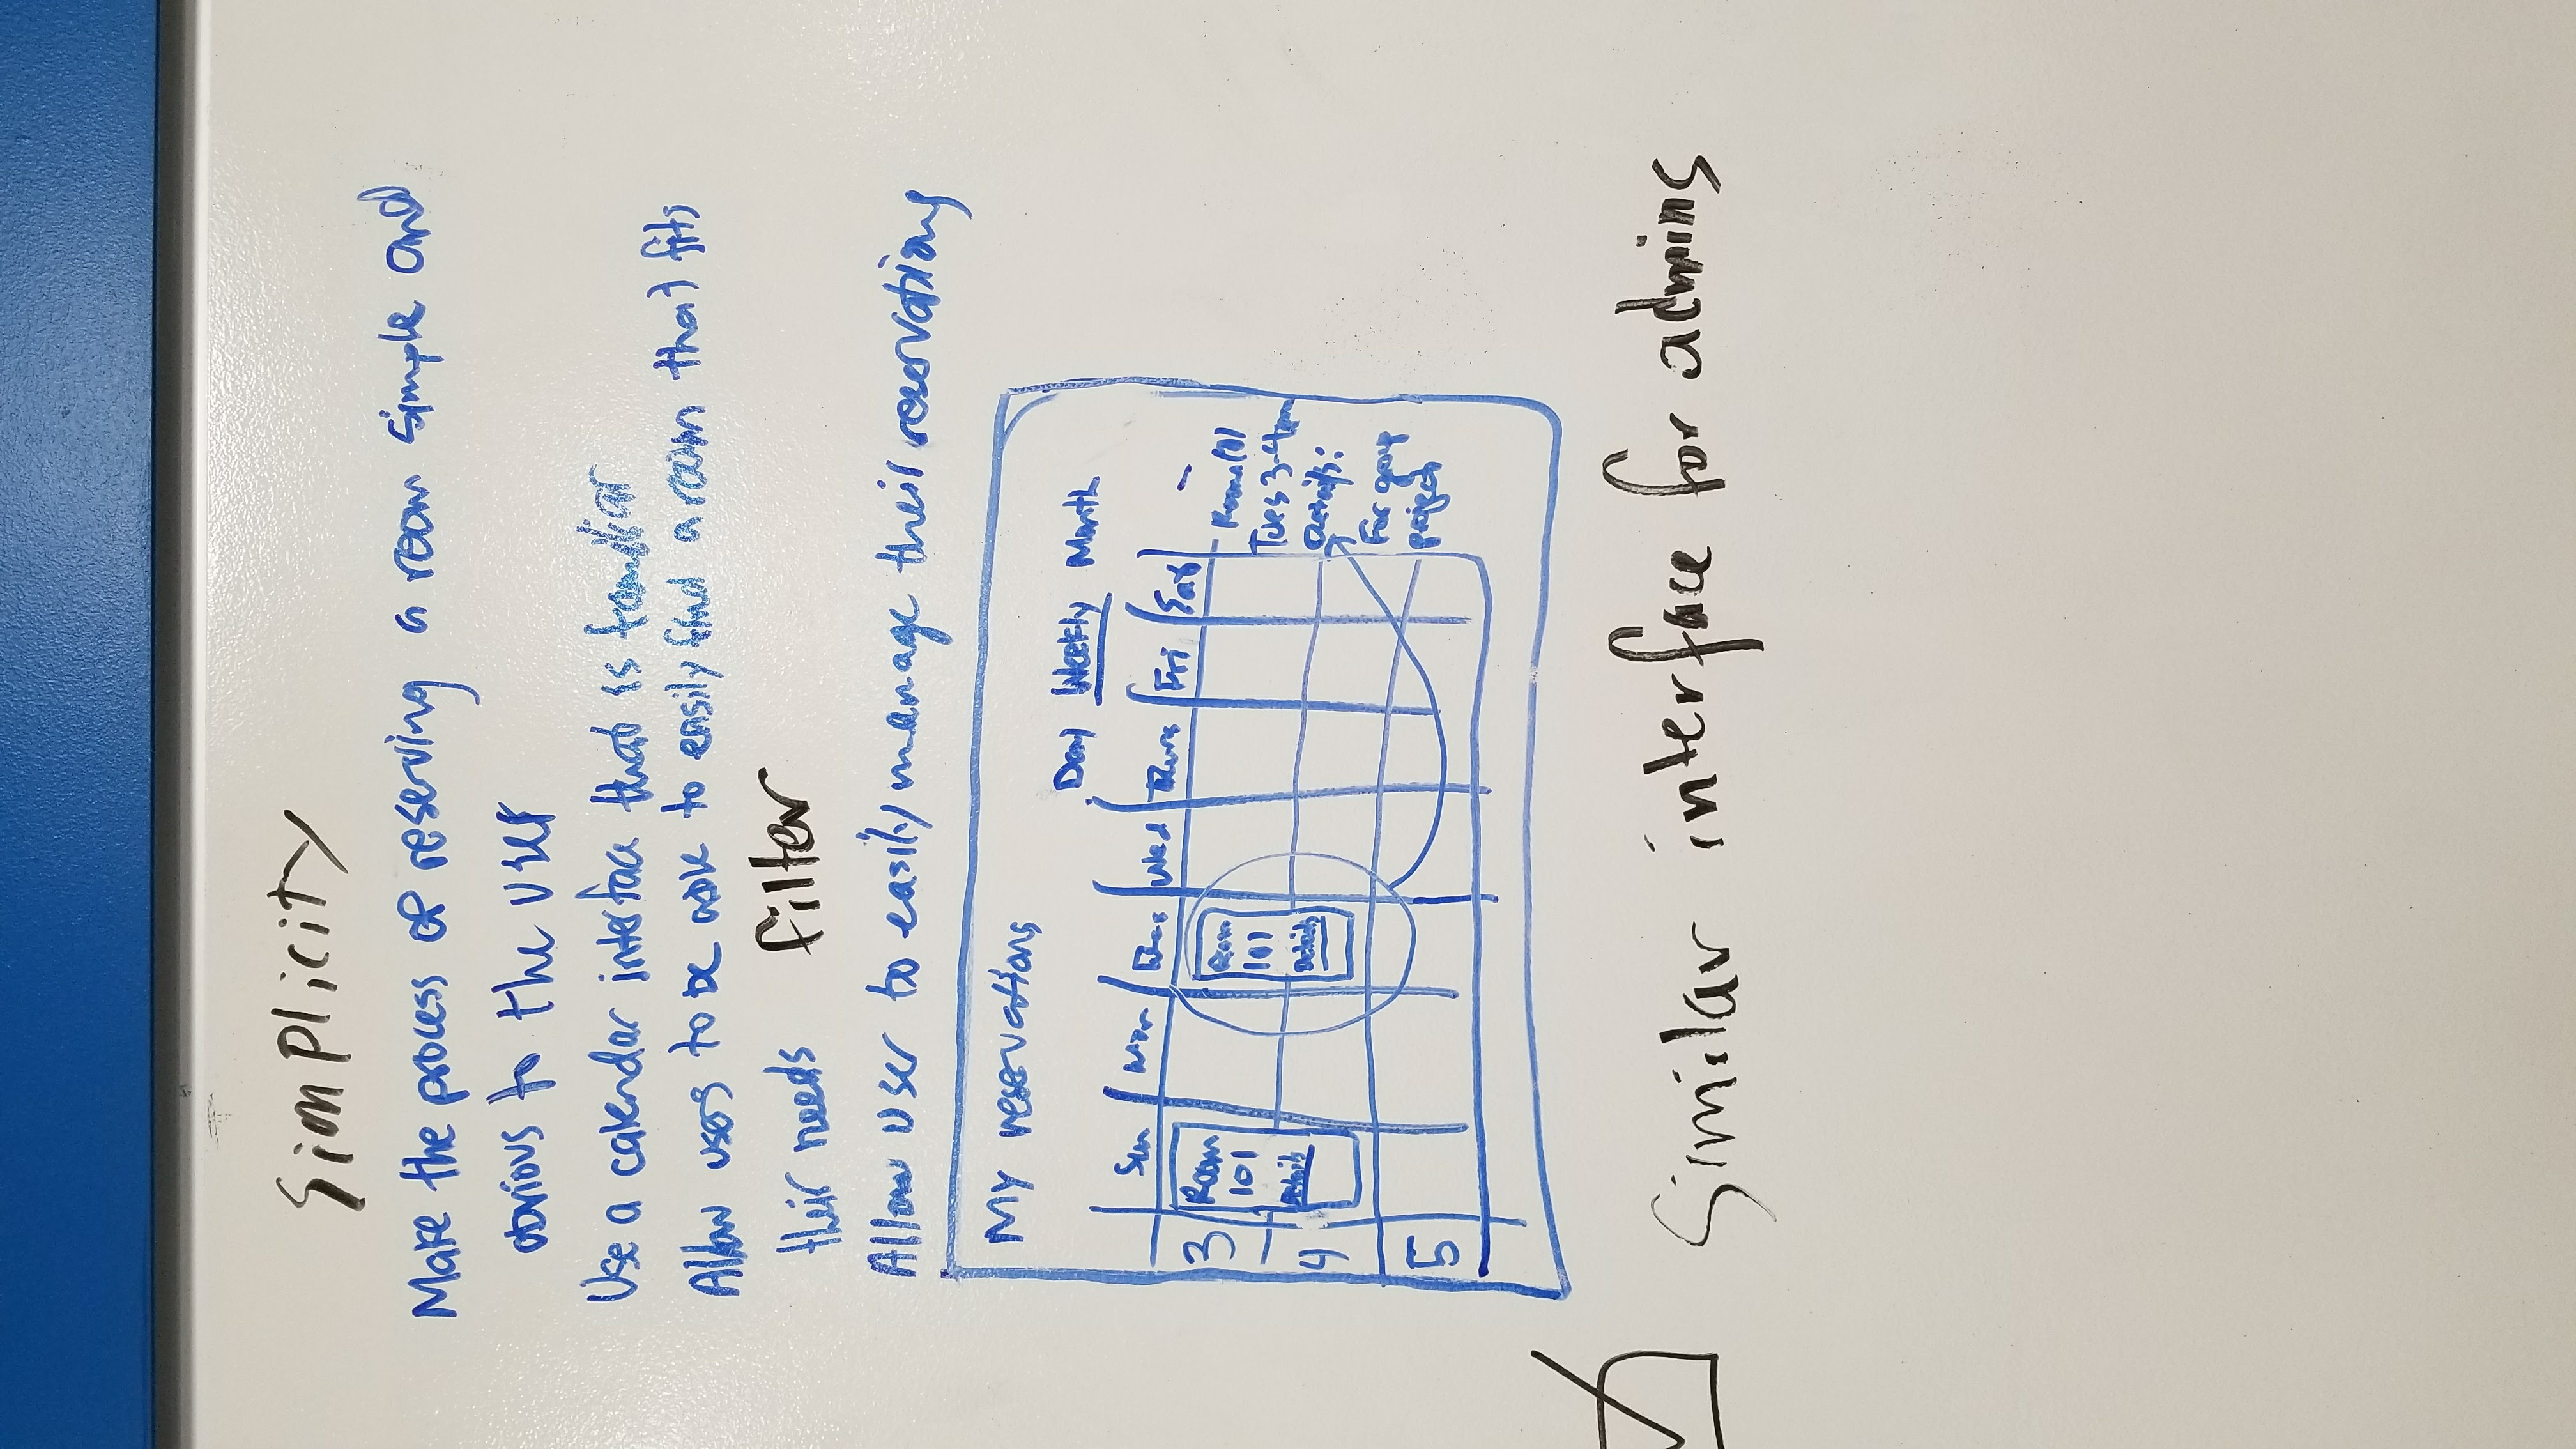 Simplicity
Make the process of reserving a room simple and
obvious to the user
Use a calendar interface that is familiar
Allow users to be able to easily find a room that fits
their needs filter
Allow user to easily manage their reservations
My reservations
Day Weekly Month
Sun Mon Tues Wed Thurs Fri Sat
3
4
5
Room
101
Details
Room
101
Details
Room 101
Tues 3-4pm
Details:
For group
project
Similar interface for admins